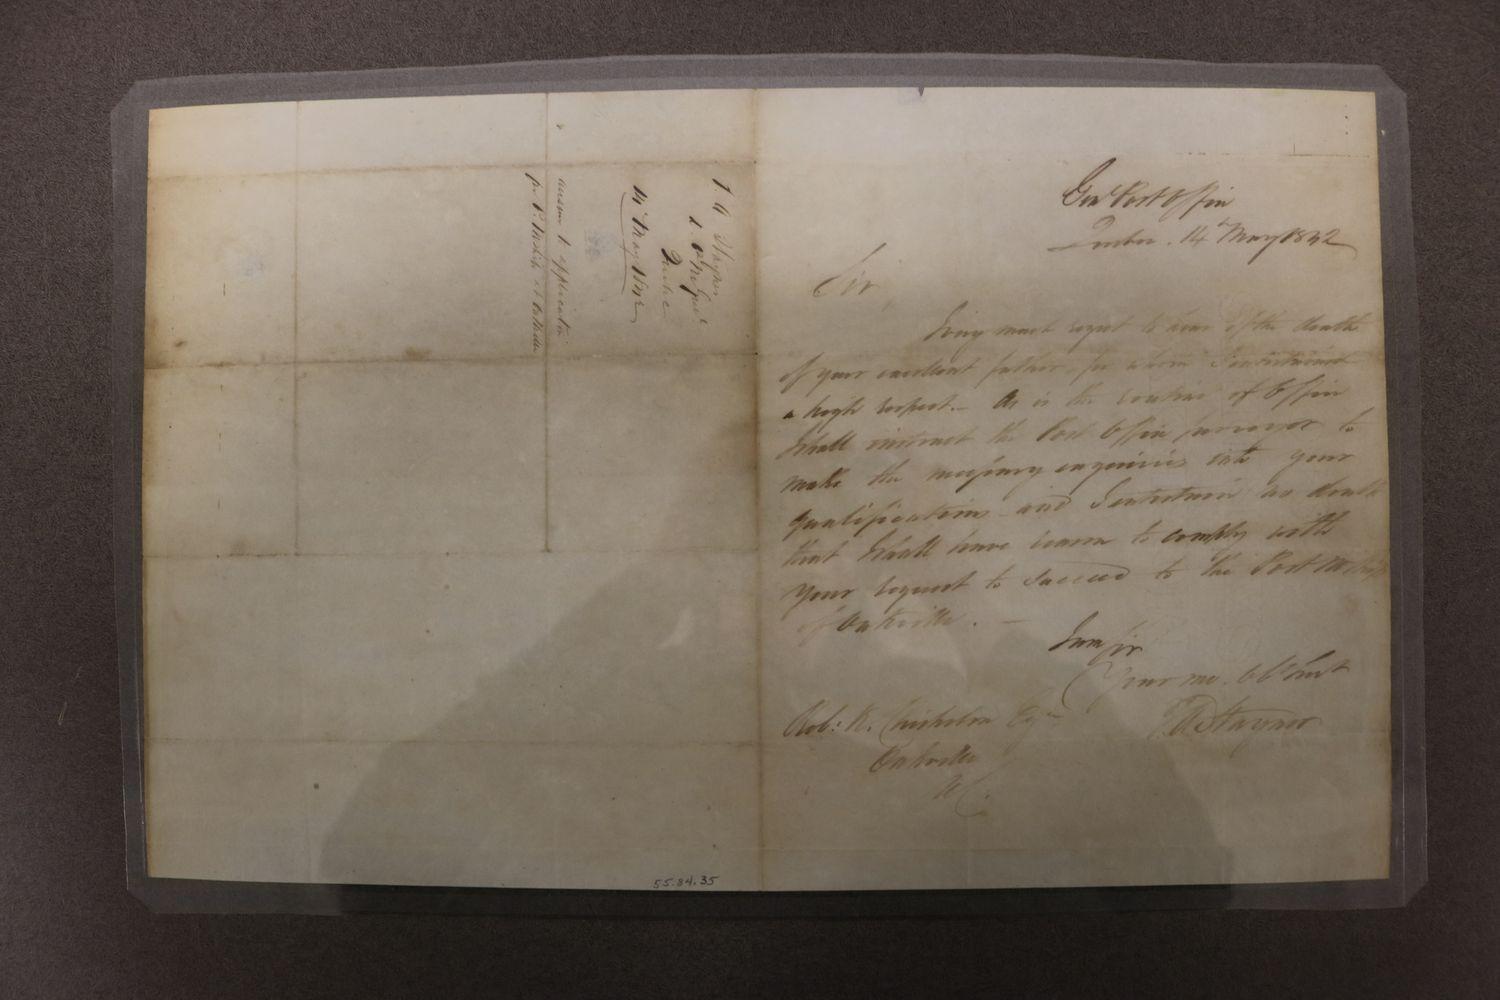 Genl Post Office
Quebec. 14th May 1842
Sir
Very much regret to hear of the death
of your excellent father, for whom I entertained
a high respect. - As is the routine of Office
I shall instruct the Post Office surveyor to
make the necessary enquiries into your
qualifications and I entertain no doubt
that I shall have reason to comply with
your request to succeed to the Post Mship
of Oakville. -
I am Sir
Your mo. ob Servt
T A Stayner
Rob: K. Chisholm Esqre
Oakville
UC.
T. A Stayner
D P M Genl
Quebec
14 May 1842
answer to application
for P. Mship at Oakville
55.84.35